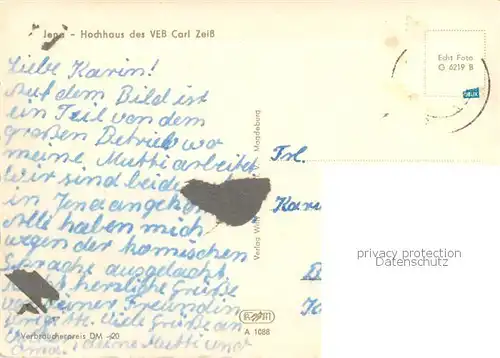 Jena - Hochhaus des VEB Carl Zeiß
Liebe Karin!
Auf dem Bild ist
ein Teil von dem
großen Betrieb wo
meine Mutti arbeitet
Wir sind beide
in Jena
Alle haben mich
wegen der komischen
Sprache ausgelacht
herzliche Grüße
von deiner Freundin
Viele Grüße an
deine Mutti und
Verbraucherpreis DM -,20
Verlag
Magdeburg
A 1088
Echt Foto
G 6219 B
Frl.
privacy protection
Datenschutz